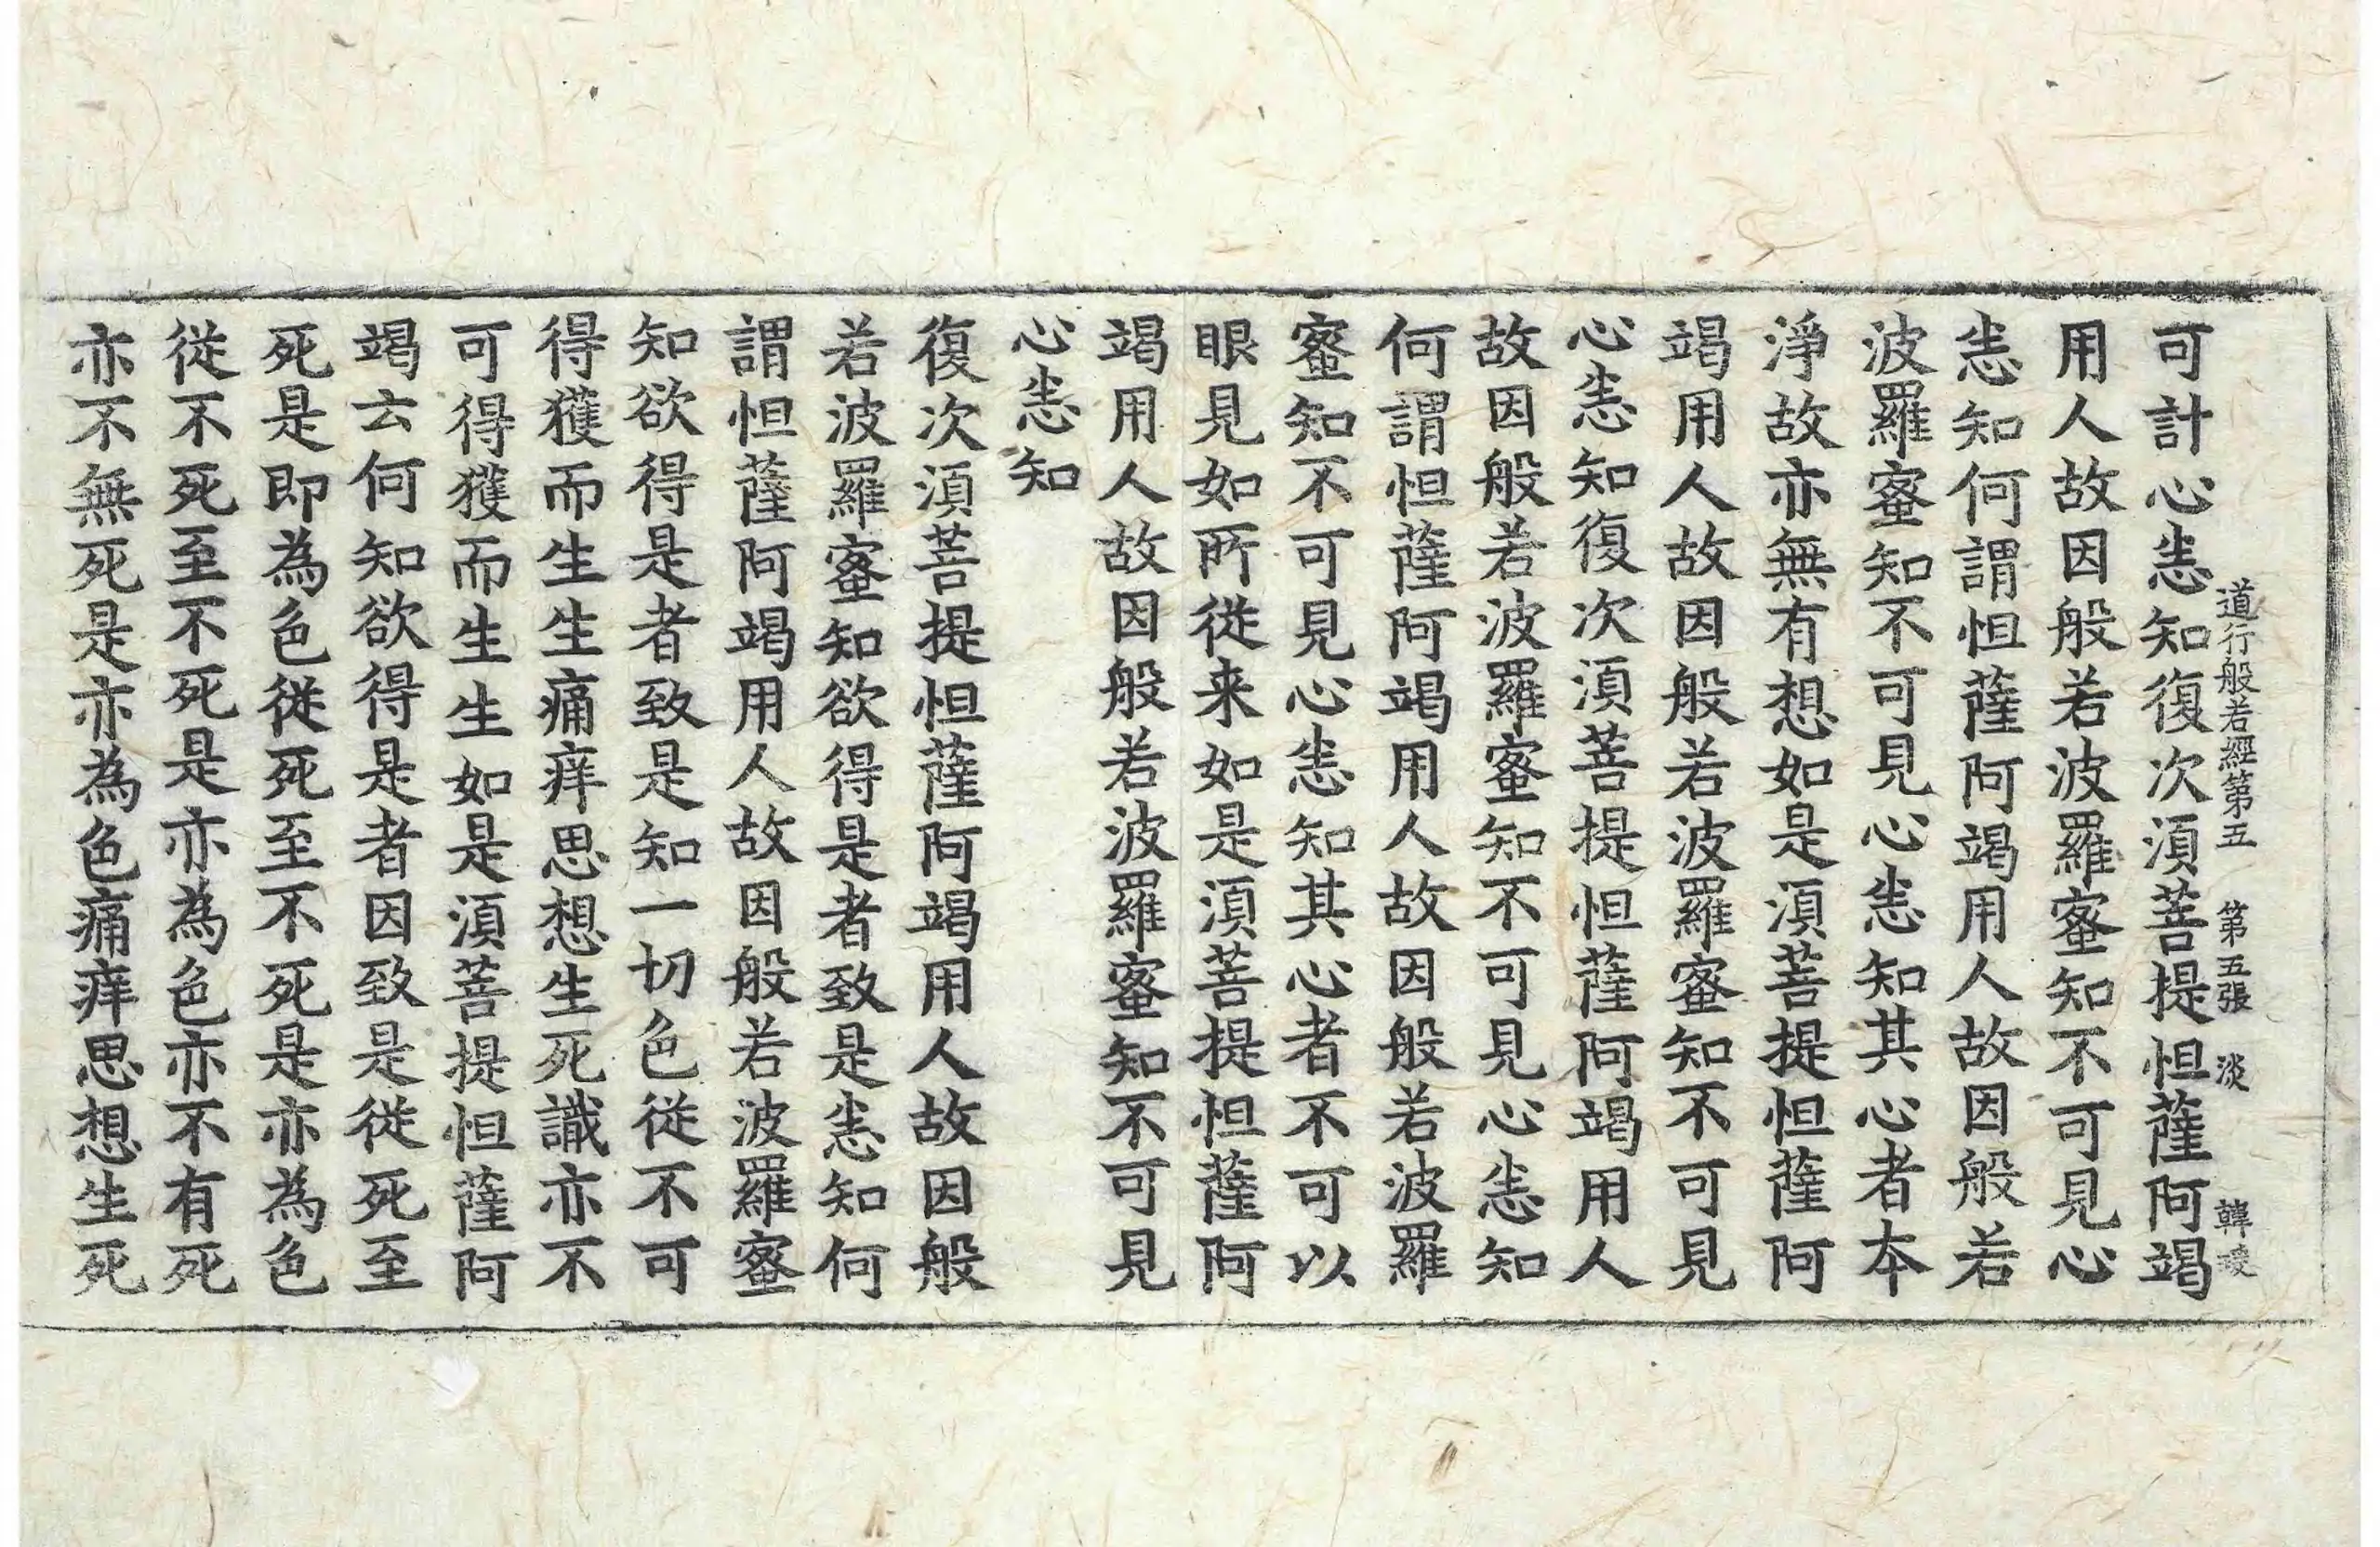 道行般若經第五　第五張　淡　韓
可計心恚知復次湏菩提怛薩阿竭
用人故因般若波羅蜜知不可見心
恚知何謂怛薩阿竭用人故因般若
波羅蜜知不可見心恚知其心者本
淨故亦無有想如是湏菩提怛薩阿
竭用人故因般若波羅蜜知不可見
心恚知復次湏菩提怛薩阿竭用人
故因般若波羅蜜知不可見心恚知
何謂怛薩阿竭用人故因般若波羅
蜜知不可見心恚知其心者不可以
眼見如所從来如是湏菩提怛薩阿
竭用人故因般若波羅蜜知不可見
心恚知
復次湏菩提怛薩阿竭用人故因般
若波羅蜜知欲得是者致是恚知何
謂怛薩阿竭用人故因般若波羅蜜
知欲得是者致是知一切色從不可
得獲而生生痛痒思想生死識亦不
可得獲而生生如是湏菩提怛薩阿
竭云何知欲得是者因致是從死至
死是即為色從死至不死是亦為色
從不死至不死是亦為色亦不有死
亦不無死是亦為色痛痒思想生死